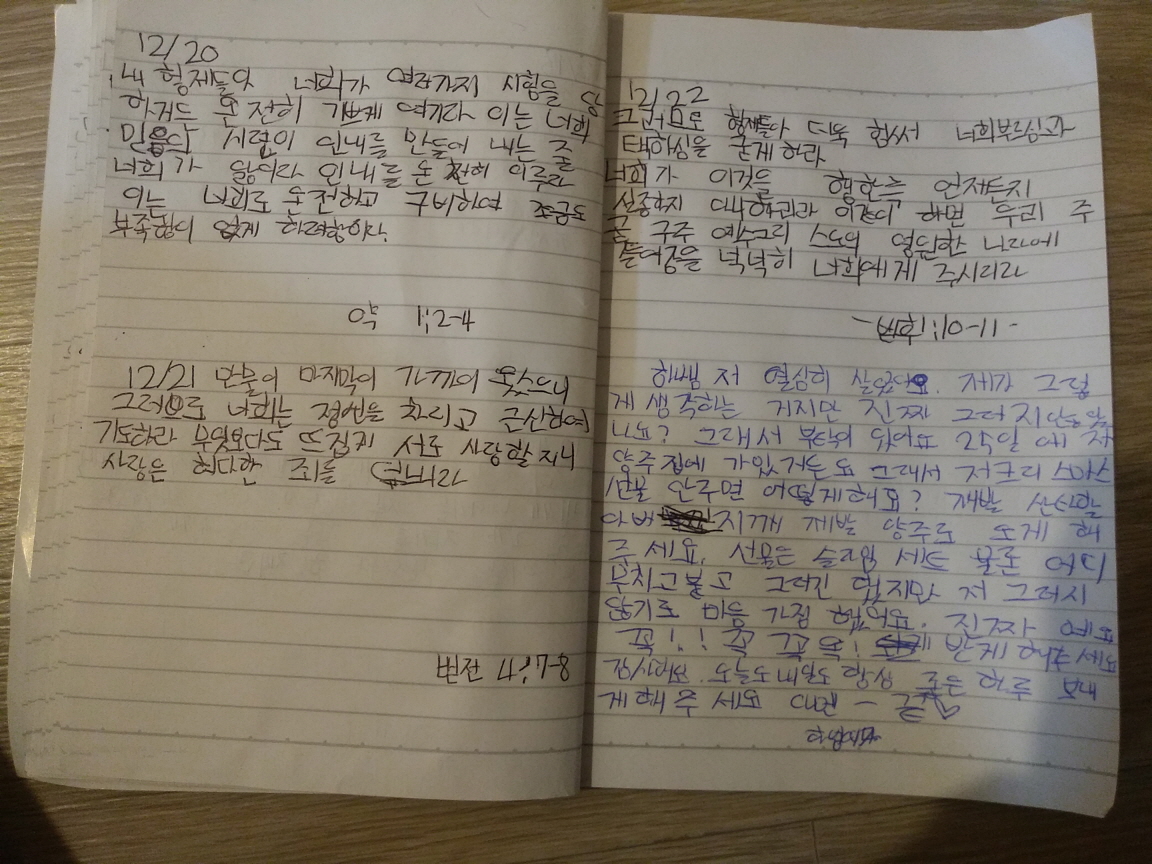 12/20
내 형제들아 너희가 여러가지 시험을 당
하거든 온전히 기쁘게 여기라 이는 너희
믿음의 시련이 인내를 만들어 내는 줄
너희가 앎이라 인내를 온전히 이루라
이는 너희로 온전하고 구비하여 조금도
부족함이 없게 하려함이라.
약 1;2-4
12/21 만물의 마지막이 가까이 왔으니
그러므로 너희는 정신을 차리고 근신하여
기도하라 무엇보다도 뜨겁게 서로 사랑할지니
사랑은 허다한 죄를 덮느니라
벧전 4;7-8
12/22
그러므로 형제들아 더욱 힘써 너희부르심과
택하심을 굳게 하라
너희가 이것을 행한즉 언제든지
실족하지 아니하리라 이같이 하면 우리 주
곧 구주 예수그리스도의 영원한 나라에
들어감을 넉넉히 너희에게 주시리라
-벧후1;10-11-
저 열심히 살았어요. 제가 그렇
게 생각하는 거지만 진짜 그러지 않
나요? 그래서 부탁이 있어요 25일에 저
양주집에 가있거든요 그래서 저 크리스마스
선물 안주면 어떻게해요? 제발 산타할
아버 지께 제발 양주로 오게 해
주세요. 선물은 슬라임 세트 물론 어디
부치고 붙고 그러긴 했지만 저 그러시
않기로 마음 가짐 했어요. 진짜 예요
꼭!! 꼭 꼭 꼭! 받게 해주세요
감사해요. 오늘도 내일도 항상 좋은 하루 보내
게 해 주세요 아멘 - 끝♡